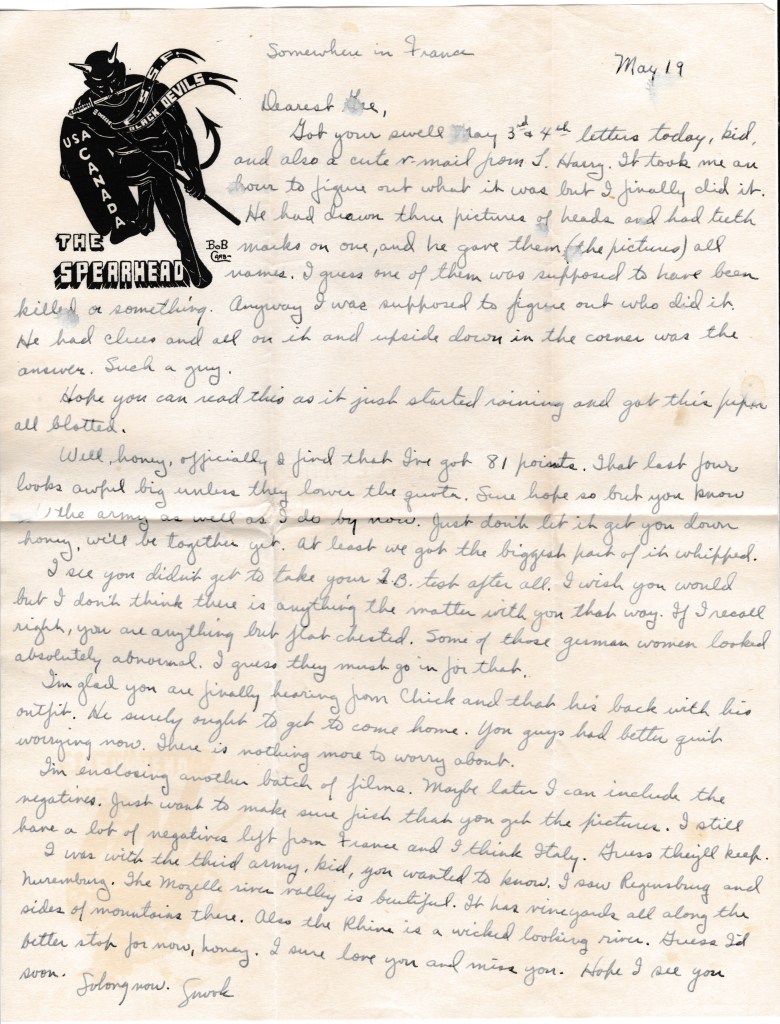 Somewhere in France
May 19
F.S.S.F.
BLACK DEVILS
USA
CANADA
THE
SPEARHEAD
BOB
Dearest
Got your swell May 3rd & 4th letters today, kid,
and also a cute v-mail from L. Harry. It took me an
hour to figure out what it was but I finally did it.
He had drawn three pictures of heads and had teeth
marks on one, and he gave them (the pictures) all
names. I guess one of them was supposed to have been
killed or something. Anyway I was supposed to figure out who did it.
He had clues and all on it and upside down in the corner was the
answer. Such a guy.
Hope you can read this as it just started raining and got this paper
all blotted.
Well, honey, officially I find that I've got 81 points. That last four
looks awful big unless they lower the quota. Sure hope so but you know
the army as well as I do by now. Just don't let it get you down
honey, we'll be together yet. At least we got the biggest part of it whipped.
I see you didn't get to take your T.B. test after all. I wish you would
but I don't think there is anything the matter with you that way. If I recall
right, you are anything but flat chested. Some of those german women looked
absolutely abnormal. I guess they must go in for that.
I'm glad you are finally hearing from Chick and that his back with his
outfit. He surely ought to get to come home. You guys had better quit
worrying now. There is nothing more to worry about.
I'm enclosing another batch of films. Maybe later I can include the
negatives. Just want to make sure first that you get the pictures. I still
have a lot of negatives left from France and I think Italy. Guess they'll keep.
I was with the third army, kid, you wanted to know. I saw Regensburg and
Nuremburg. The Mozelle river valley is beutiful. It has vineyards all along the
sides of mountains there. Also the Rhine is a wicked looking river. Guess I'd
better stop for now, honey. I sure love you and miss you. Hope I see you
soon.
So long now.